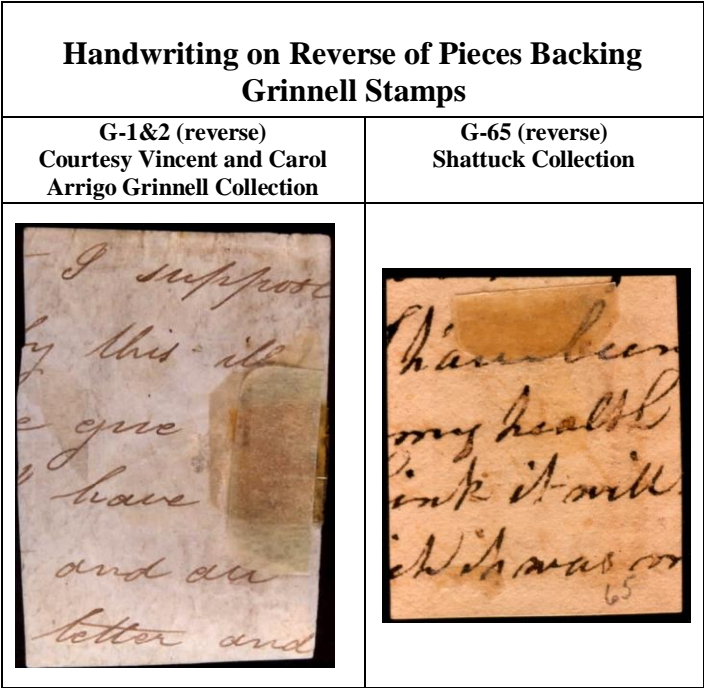 Handwriting on Reverse of Pieces Backing
Grinnell Stamps
G-1&2 (reverse)
Courtesy Vincent and Carol
Arrigo Grinnell Collection
G-65 (reverse)
Shattuck Collection
I suppose
this
give
have
and au
letter and
my health
ink it will
was
65